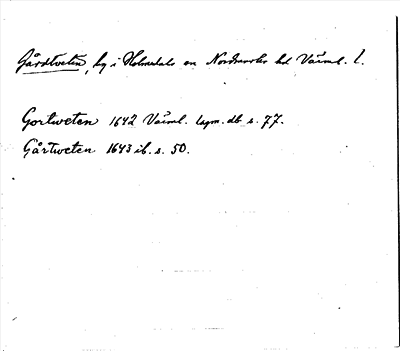 Gårdtveten, by i Holmedals sn Nordmarks hd Värml. l.
Gortweten 1642 Värml. lagm. db s. 77.
Gårtweten 1643 ib. s. 50.